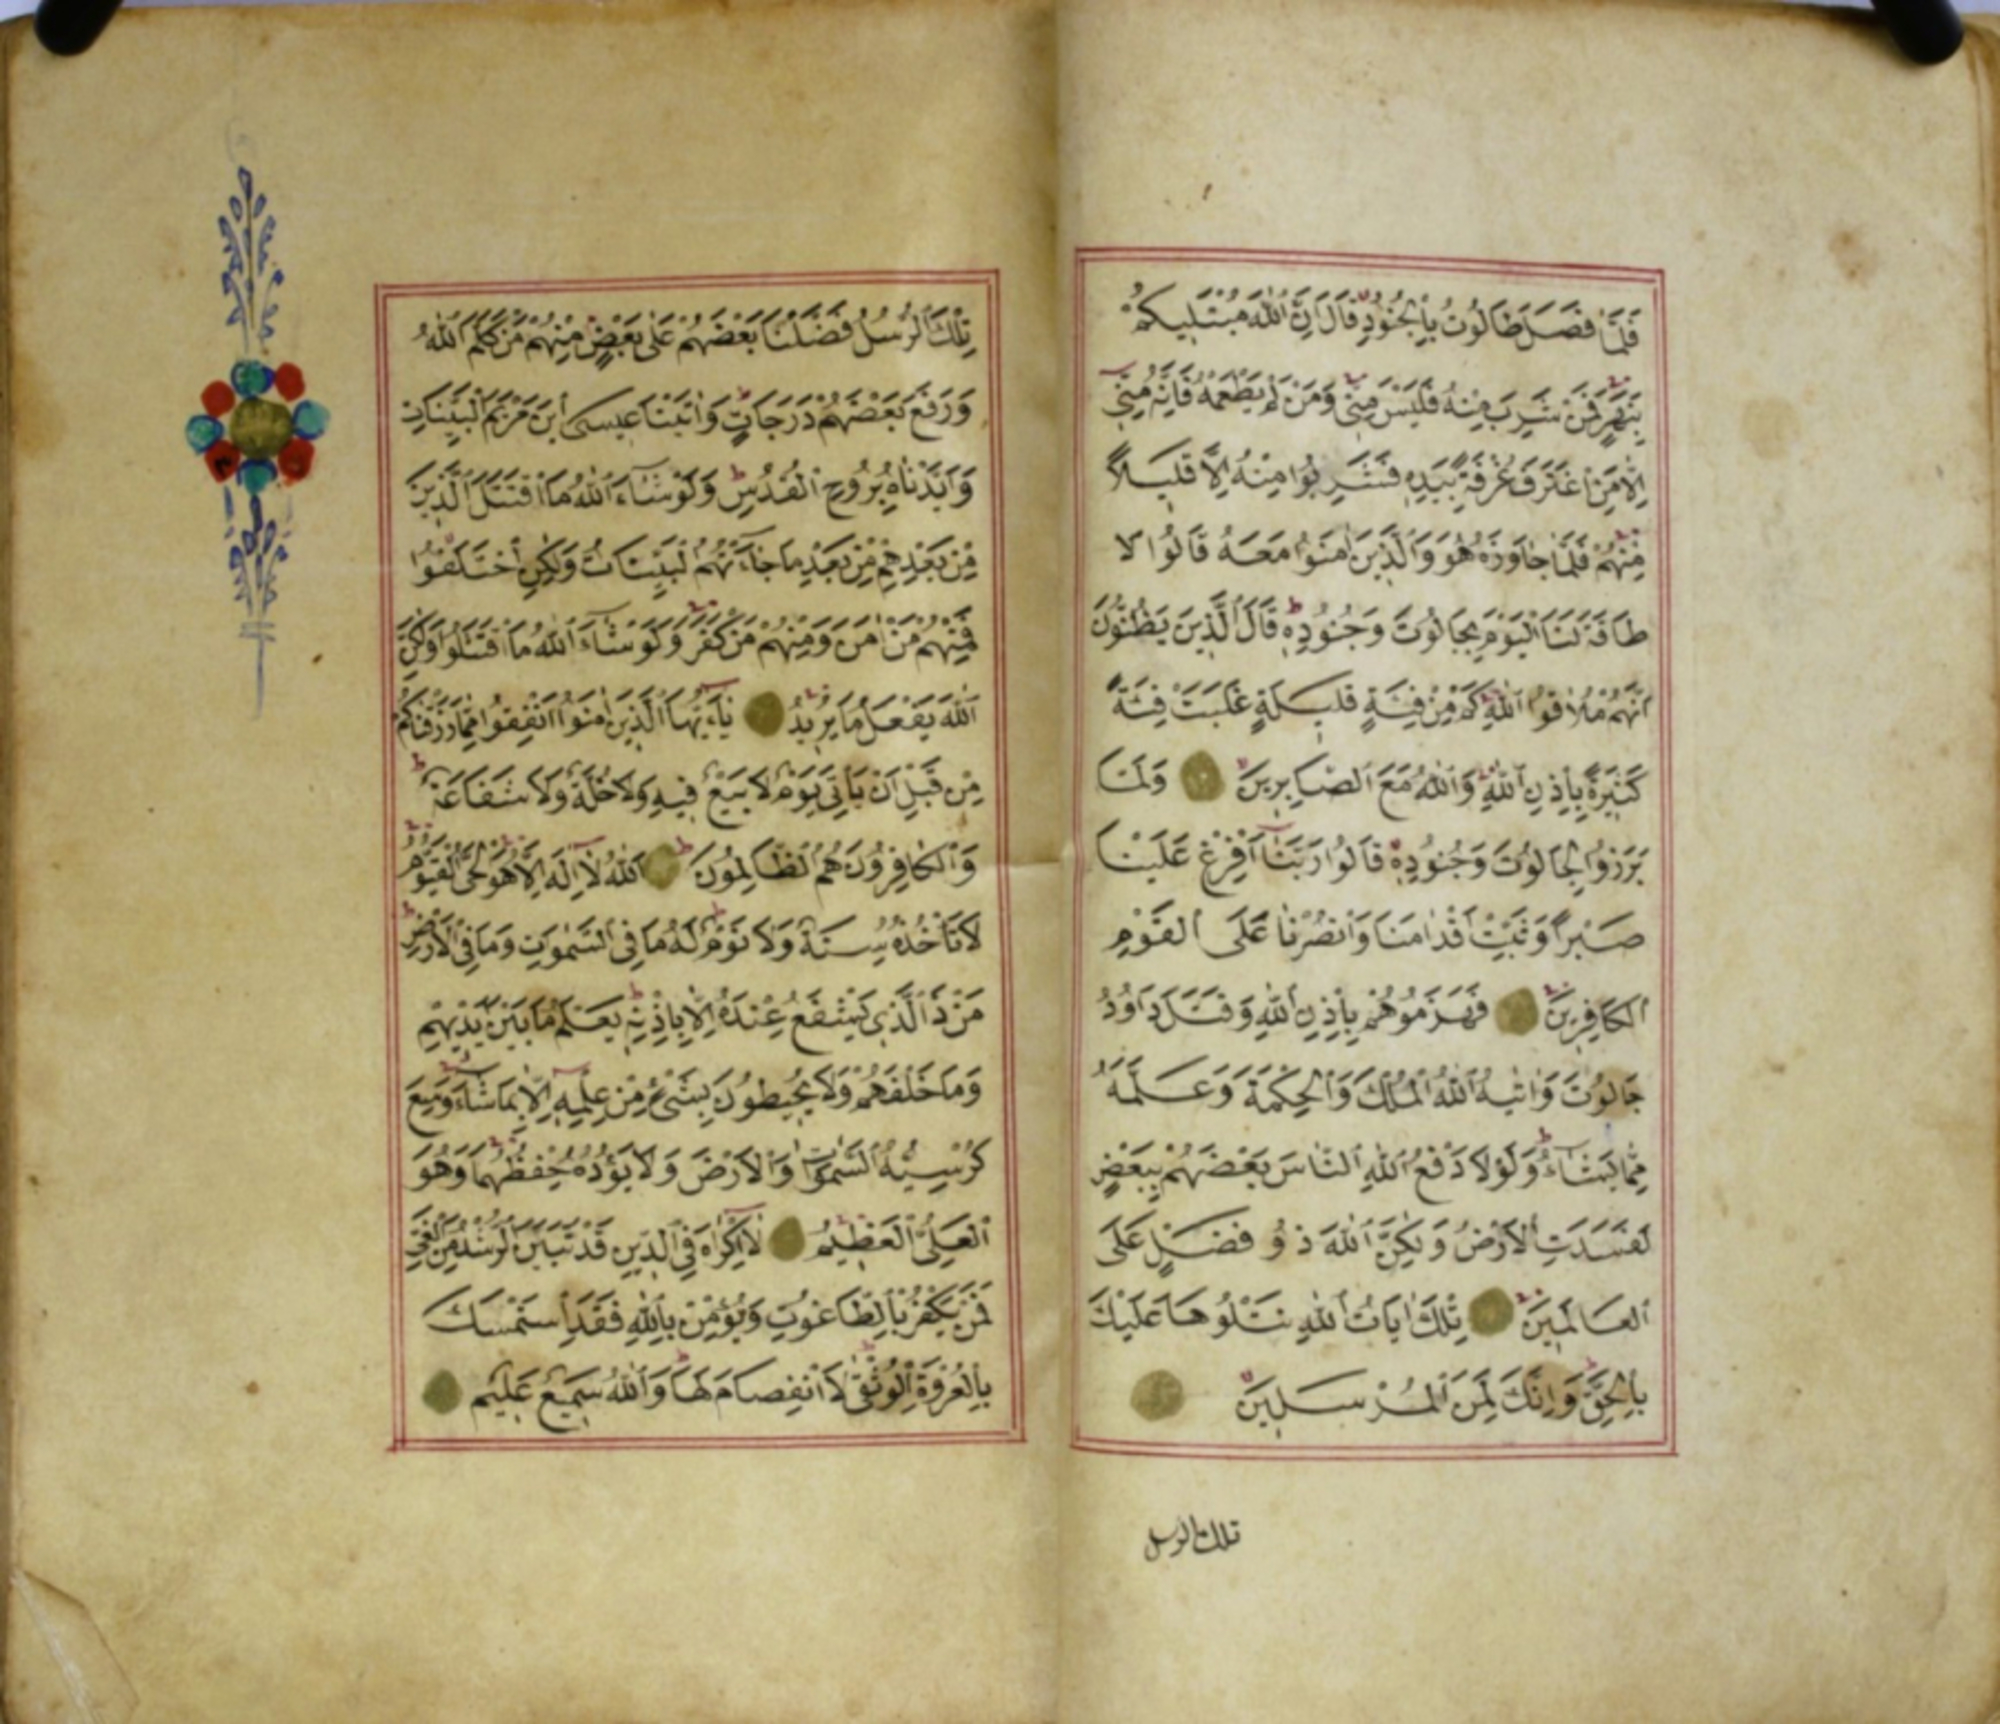 فَلَمَّا فَصَلَ طَالُوتُ بِالْجُنُودِ قَالَ اِنَّ اللّٰهَ مُبْتَلِيكُمْ
بِنَهَرٍ فَمَنْ شَرِبَ مِنْهُ فَلَيْسَ مِنِّي وَمَنْ لَمْ يَطْعَمْهُ فَاِنَّهُ مِنِّي
اِلَّا مَنِ اغْتَرَفَ غُرْفَةً بِيَدِهِ فَشَرِبُوا مِنْهُ اِلَّا قَلِيلًا
مِنْهُمْ فَلَمَّا جَاوَزَهُ هُوَ وَالَّذِينَ اٰمَنُوا مَعَهُ قَالُوا لَا
طَاقَةَ لَنَا الْيَوْمَ بِجَالُوتَ وَجُنُودِهِ قَالَ الَّذِينَ يَظُنُّونَ
اَنَّهُمْ مُلَاقُوا اللّٰهِ كَمْ مِنْ فِئَةٍ قَلِيلَةٍ غَلَبَتْ فِئَةً
كَثِيرَةً بِاِذْنِ اللّٰهِ وَاللّٰهُ مَعَ الصَّابِرِينَ وَلَمَّا
بَرَزُوا لِجَالُوتَ وَجُنُودِهِ قَالُوا رَبَّنَا اَفْرِغْ عَلَيْنَا
صَبْرًا وَثَبِّتْ اَقْدَامَنَا وَانْصُرْنَا عَلَى الْقَوْمِ
الْكَافِرِينَ فَهَزَمُوهُمْ بِاِذْنِ اللّٰهِ وَقَتَلَ دَاوُدُ
جَالُوتَ وَاٰتٰيهُ اللّٰهُ الْمُلْكَ وَالْحِكْمَةَ وَعَلَّمَهُ
مِمَّا يَشَٓاءُ وَلَوْلَا دَفْعُ اللّٰهِ النَّاسَ بَعْضَهُمْ بِبَعْضٍ
لَفَسَدَتِ الْاَرْضُ وَلٰكِنَّ اللّٰهَ ذُو فَضْلٍ عَلَى
الْعَالَمِينَ تِلْكَ اٰيَاتُ اللّٰهِ نَتْلُوهَا عَلَيْكَ
بِالْحَقِّ وَاِنَّكَ لَمِنَ الْمُرْسَلِينَ
تلك الرسل
تِلْكَ الرُّسُلُ فَضَّلْنَا بَعْضَهُمْ عَلٰى بَعْضٍ مِنْهُمْ مَنْ كَلَّمَ اللّٰهُ
وَرَفَعَ بَعْضَهُمْ دَرَجَاتٍ وَاٰتَيْنَا عِيسَى ابْنَ مَرْيَمَ الْبَيِّنَاتِ
وَاَيَّدْنَاهُ بِرُوحِ الْقُدُسِ وَلَوْ شَٓاءَ اللّٰهُ مَا اقْتَتَلَ الَّذِينَ
مِنْ بَعْدِهِمْ مِنْ بَعْدِ مَا جَٓاءَتْهُمُ الْبَيِّنَاتُ وَلٰكِنِ اخْتَلَفُوا
فَمِنْهُمْ مَنْ اٰمَنَ وَمِنْهُمْ مَنْ كَفَرَ وَلَوْ شَٓاءَ اللّٰهُ مَا اقْتَتَلُوا وَلٰكِنَّ
اللّٰهَ يَفْعَلُ مَا يُرِيدُ يَٓا اَيُّهَا الَّذِينَ اٰمَنُوا اَنْفِقُوا مِمَّا رَزَقْنَاكُمْ
مِنْ قَبْلِ اَنْ يَاْتِيَ يَوْمٌ لَا بَيْعٌ فِيهِ وَلَا خُلَّةٌ وَلَا شَفَاعَةٌ
وَالْكَافِرُونَ هُمُ الظَّالِمُونَ اَللّٰهُ لَٓا اِلٰهَ اِلَّا هُوَ الْحَيُّ الْقَيُّومُ
لَا تَاْخُذُهُ سِنَةٌ وَلَا نَوْمٌ لَهُ مَا فِي السَّمٰوَاتِ وَمَا فِي الْاَرْضِ
مَنْ ذَا الَّذِي يَشْفَعُ عِنْدَهُ اِلَّا بِاِذْنِهِ يَعْلَمُ مَا بَيْنَ اَيْدِيهِمْ
وَمَا خَلْفَهُمْ وَلَا يُحِيطُونَ بِشَيْءٍ مِنْ عِلْمِهِ اِلَّا بِمَا شَٓاءَ وَسِعَ
كُرْسِيُّهُ السَّمٰوَاتِ وَالْاَرْضَ وَلَا يَؤُدُهُ حِفْظُهُمَا وَهُوَ
الْعَلِيُّ الْعَظِيمُ لَٓا اِكْرَاهَ فِي الدِّينِ قَدْ تَبَيَّنَ الرُّشْدُ مِنَ الْغَيِّ
فَمَنْ يَكْفُرْ بِالطَّاغُوتِ وَيُؤْمِنْ بِاللّٰهِ فَقَدِ اسْتَمْسَكَ
بِالْعُرْوَةِ الْوُثْقٰى لَا انْفِصَامَ لَهَا وَاللّٰهُ سَمِيعٌ عَلِيمٌ